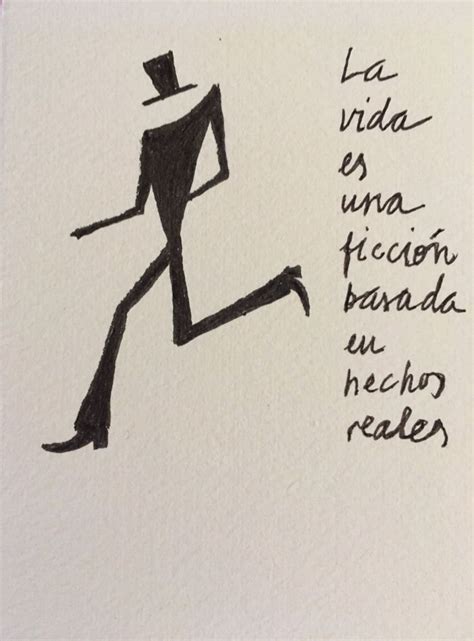 La
vida
es
una
ficción
basada
en
hechos
reales